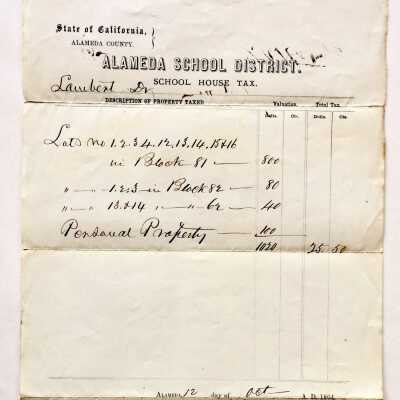 State of California,
ALAMEDA COUNTY.
ALAMEDA SCHOOL DISTRICT.
SCHOOL HOUSE TAX.
Lambert Dr
DESCRIPTION OF PROPERTY TAXED Valuation. Total Tax.
Dolls. Cts. Dolls. Cts.
Lots No 1.2.3.4.12.13.14.15&16
in Block 81 — 800
" — " 1.2&3 — in Block 82 — 80
" — " 13&14 " — " 62 — 40
Personal Property — 100
1020 25 50
ALAMEDA, 12 day of Oct A. D. 1864